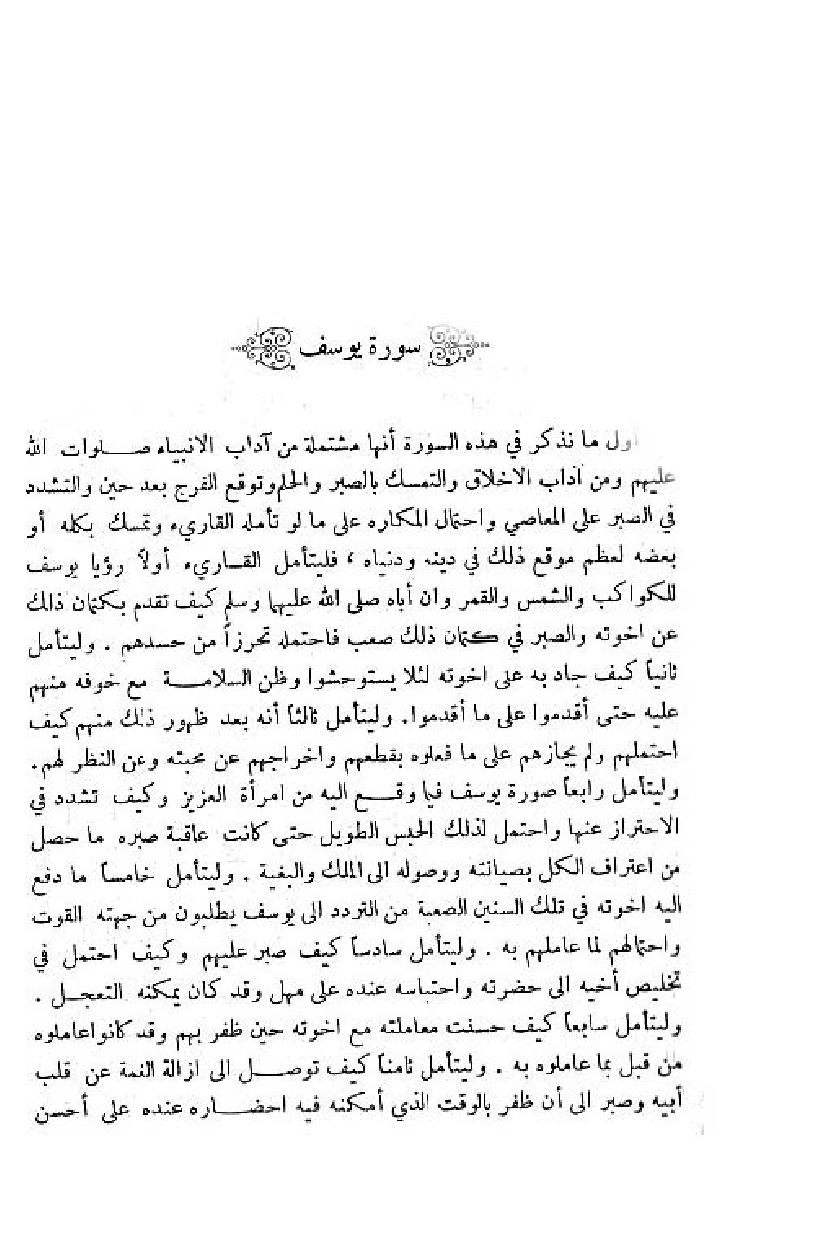 سورة يوسف
اول ما نذكر في هذه السورة أنها مشتملة من آداب الانبياء صلوات الله
عليهم ومن آداب الاخلاق والتمسك بالصبر والحلم وتوقع الفرج بعد حين والتشدد
في الصبر على المعاصي واحتمال المكاره على ما لو تأمله القاريء وتمسك بكله أو
بعضه لعظم موقع ذلك في دينه ودنياه ، فليتأمل القاريء أولاً رؤيا يوسف
للكواكب والشمس والقمر وان أباه صلى الله عليهما وسلم كيف تقدم بكتمان ذلك
عن اخوته والصبر في كتمان ذلك صعب فاحتمله تحرزاً من حسدهم . وليتأمل
ثانياً كيف جاد به على اخوته لئلا يستوحشوا وظن السلامة مع خوفه منهم
عليه حتى أقدموا على ما أقدموا. وليتأمل ثالثاً أنه بعد ظهور ذلك منهم كيف
احتملهم ولم يجازهم على ما فعلوه بقطعهم واخراجهم عن محبته وعن النظر لهم.
وليتأمل رابعاً صورة يوسف فيما وقع اليه من امرأة العزيز وكيف تشدد في
الاحتراز عنها واحتمل لذلك الحبس الطويل حتى كانت عاقبة صبره ما حصل
من اعتراف الكل بصيانته ووصوله الى الملك والبغية . وليتأمل خامساً ما دفع
اليه اخوته في تلك السنين الصعبة من التردد الى يوسف يطلبون من جهته القوت
واحتمالهم لما عاملهم به . وليتأمل سادساً كيف صبر عليهم وكيف احتمل في
تخليص أخيه الى حضرته واحتباسه عنده على مهل وقد كان يمكنه التعجل .
وليتأمل سابعاً كيف حسنت معاملته مع اخوته حين ظفر بهم وقد كانوا عاملوه
من قبل بما عاملوه به . وليتأمل ثامناً كيف توصل الى ازالة الغمة عن قلب
أبيه وصبر الى أن ظفر بالوقت الذي أمكنه فيه احضاره عنده على أحسن